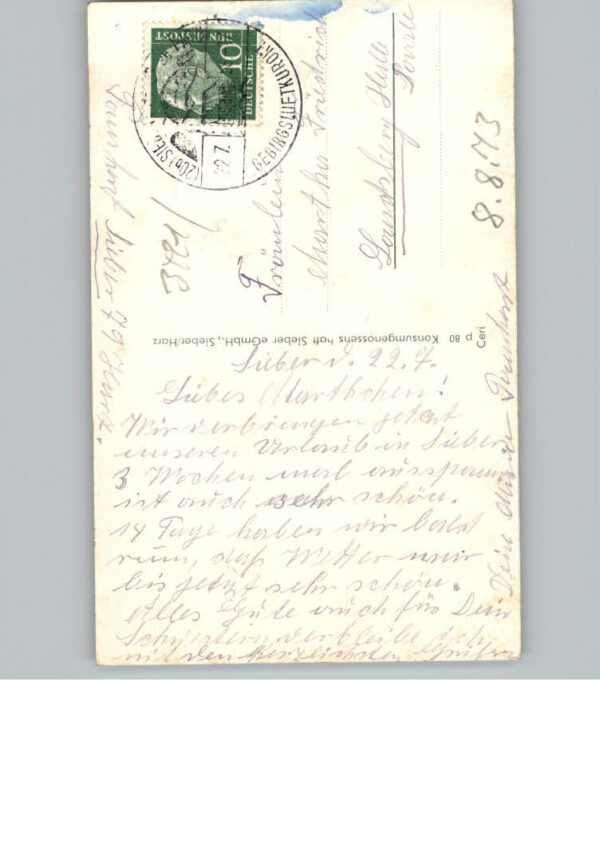 Sieber d. 22.7.
Liebes Marthchen!
Wir verbringen jetzt
unseren Urlaub in Sieber
3 Wochen mal ausspannen
ist auch sehr schön.
14 Tage haben wir bald
rum, das Wetter war
bis jetzt sehr schön.
Alles Gute auch für Dein
Schwestern verbleibe ich
mit den herzlichsten Grüßen
Dein
Fräulein
Martha Friedrich
Landsberg Halle
Saale
DEUTSCHE
BUNDESPOST
10
(20b) SIE
22.7.
GEBIRGS(LUFT)KURORT
3421/
8.8.73
Sieber
79
Harz.
Konsumgenossenschaft Sieber eGmbH., Sieber/Harz
p 80
Ceri